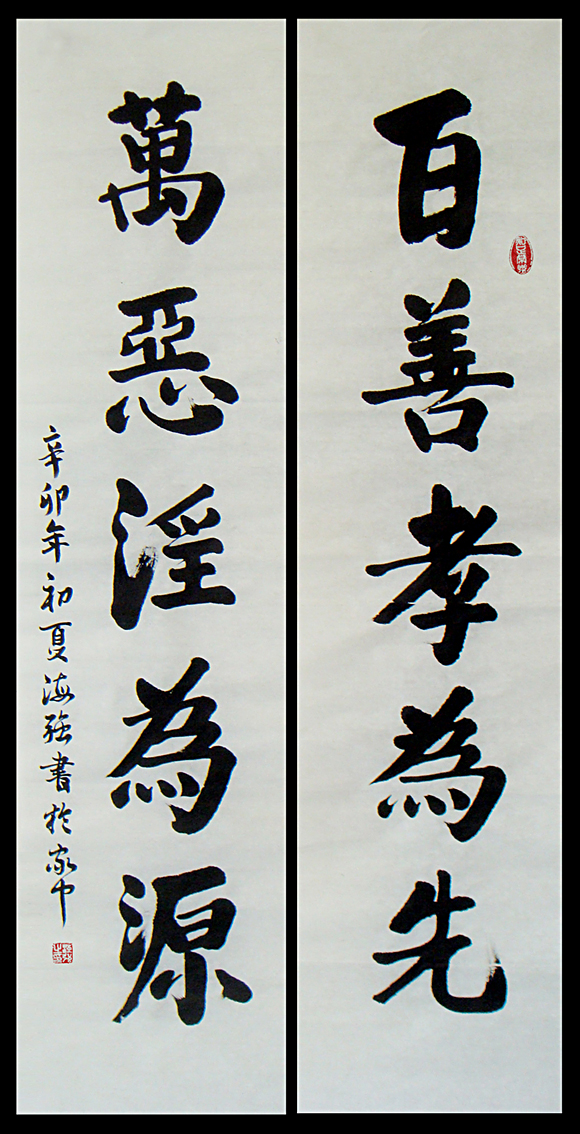 百善孝為先
萬惡淫為源
辛卯年初夏海强書於家中